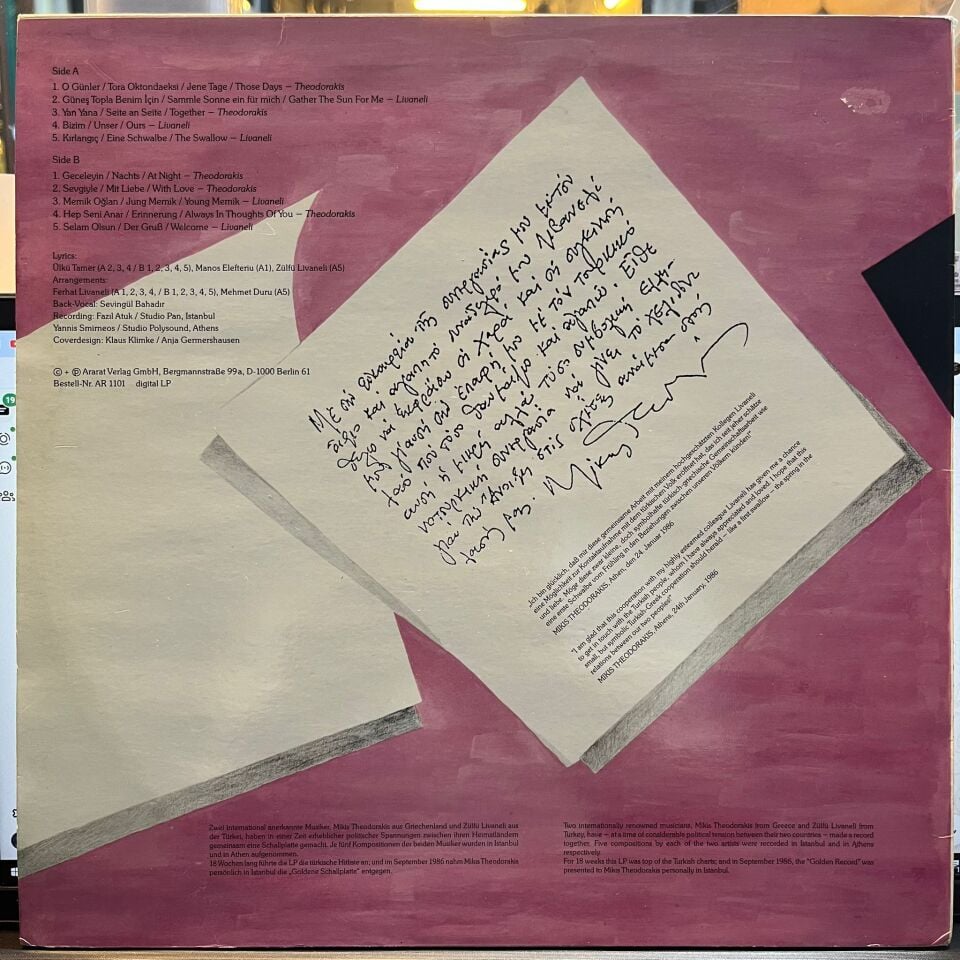 Side A
1. O Günler / Tora Oktondaeksi / Jene Tage / Those Days – Theodorakis
2. Güneş Topla Benim İçin / Sammle Sonne ein für mich / Gather The Sun For Me – Livaneli
3. Yan Yana / Seite an Seite / Together – Theodorakis
4. Bizim / Unser / Ours – Livaneli
5. Kırlangıç / Eine Schwalbe / The Swallow – Livaneli
Side B
1. Geceleyin / Nachts / At Night – Theodorakis
2. Sevgiyle / Mit Liebe / With Love – Theodorakis
3. Memik Oğlan / Jung Memik / Young Memik – Livaneli
4. Hep Seni Anar / Erinnerung / Always In Thoughts Of You – Theodorakis
5. Selam Olsun / Der Gruß / Welcome – Livaneli
Lyrics:
Ülkü Tamer (A 2, 3, 4 / B 1, 2, 3, 4, 5), Manos Elefteriu (A1), Zülfü Livaneli (A5)
Arrangements:
Ferhat Livaneli (A 1, 2, 3, 4, / B 1, 2, 3, 4, 5), Mehmet Duru (A5)
Back-Vocal: Sevingül Bahadır
Recording: Fazıl Atuk / Studio Pan, Istanbul
Yannis Smirneos / Studio Polysound, Athens
Coverdesign: Klaus Klimke / Anja Germershausen
© + ℗ Ararat Verlag GmbH, Bergmannstraße 99a, D-1000 Berlin 61
Bestell-Nr. AR 1101 digital LP
Με την ευκαιρία της συνεργασίας μου με τον
άξιο και αγαπητό συνάδελφό μου Λιβανελί
θέλω να εκφράσω τη χαρά και τη συγκίνησή
μου γι' αυτή την επαφή μου με τον Τουρκικό
λαό που τόσο θαυμάζω και αγαπώ. Είθε
αυτή η μικρή αλλά τόσο συμβολική Ελλη-
νοτουρκική συνεργασία να γίνει το χελιδόνι
για την Άνοιξη στις σχέσεις ανάμεσα στους
λαούς μας.
„Ich bin glücklich, daß mir diese gemeinsame Arbeit mit meinem hochgeschätzten Kollegen Livaneli
eine Möglichkeit zur Kontaktaufnahme mit dem türkischen Volk eröffnet hat, das ich seit jeher schätze
und liebe. Möge diese zwar kleine, doch symbolhafte türkisch-griechische Gemeinschaftsarbeit wie
eine erste Schwalbe vom Frühling in den Beziehungen zwischen unseren Völkern künden!“
MIKIS THEODORAKIS, Athen, den 24. Januar 1986
"I am glad that this cooperation with my highly esteemed colleague Livaneli has given me a chance
to get in touch with the Turkish people, whom I have always appreciated and loved. I hope that this
small, but symbolic Turkish-Greek cooperation should herald – like a first swallow – the spring in the
relations between our two peoples!"
MIKIS THEODORAKIS, Athens, 24th January, 1986
Zwei international anerkannte Musiker, Mikis Theodorakis aus Griechenland und Zülfü Livaneli aus
der Türkei, haben in einer Zeit erheblicher politischer Spannungen zwischen ihren Heimatländern
gemeinsam eine Schallplatte gemacht. Je fünf Kompositionen der beiden Musiker wurden in Istanbul
und in Athen aufgenommen.
18 Wochen lang führte die LP die türkische Hitliste an; und im September 1986 nahm Mikis Theodorakis
persönlich in Istanbul die „Goldene Schallplatte“ entgegen.
Two internationally renowned musicians, Mikis Theodorakis from Greece and Zülfü Livaneli from
Turkey, have – at a time of considerable political tension between their two countries – made a record
together. Five compositions by each of the two artists were recorded in Istanbul and in Athens
respectively.
For 18 weeks this LP was top of the Turkish charts; and in September 1986, the "Golden Record" was
presented to Mikis Theodorakis personally in Istanbul.